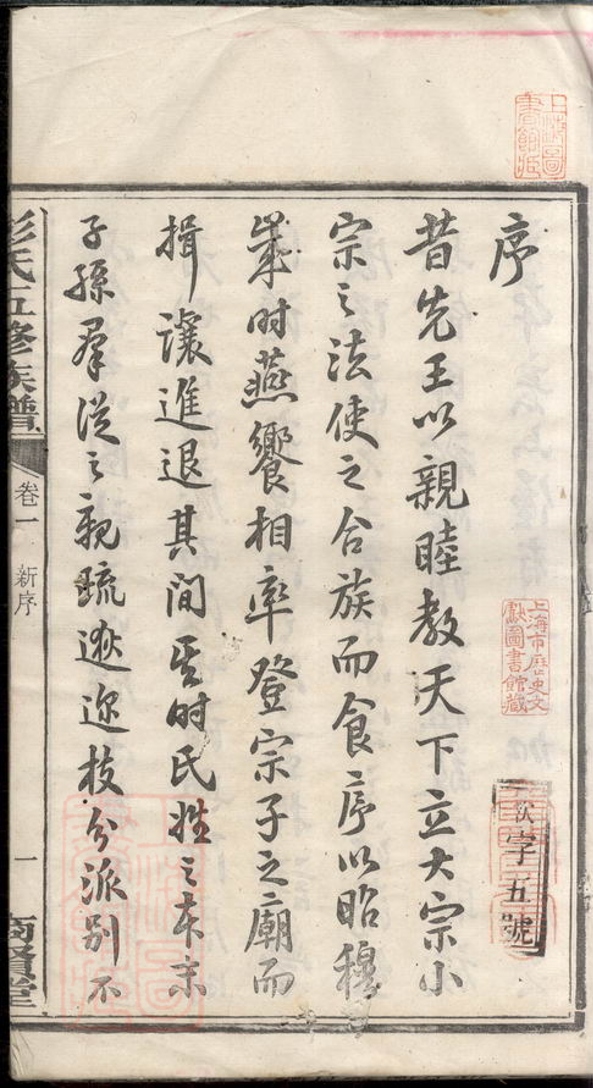 序
昔先王以親睦教天下立大宗小
宗之法使之合族而食序以昭穆
歲时燕饗相率登宗子之廟而
揖讓進退其間当时氏姓之本末
子孫羣從之親疏遠迩枝分派别不
彭氏五修族譜
卷一 新序
一
商賢堂
上海圖書館藏
上海市歷史文獻圖書館藏
字五號
上海圖書館藏